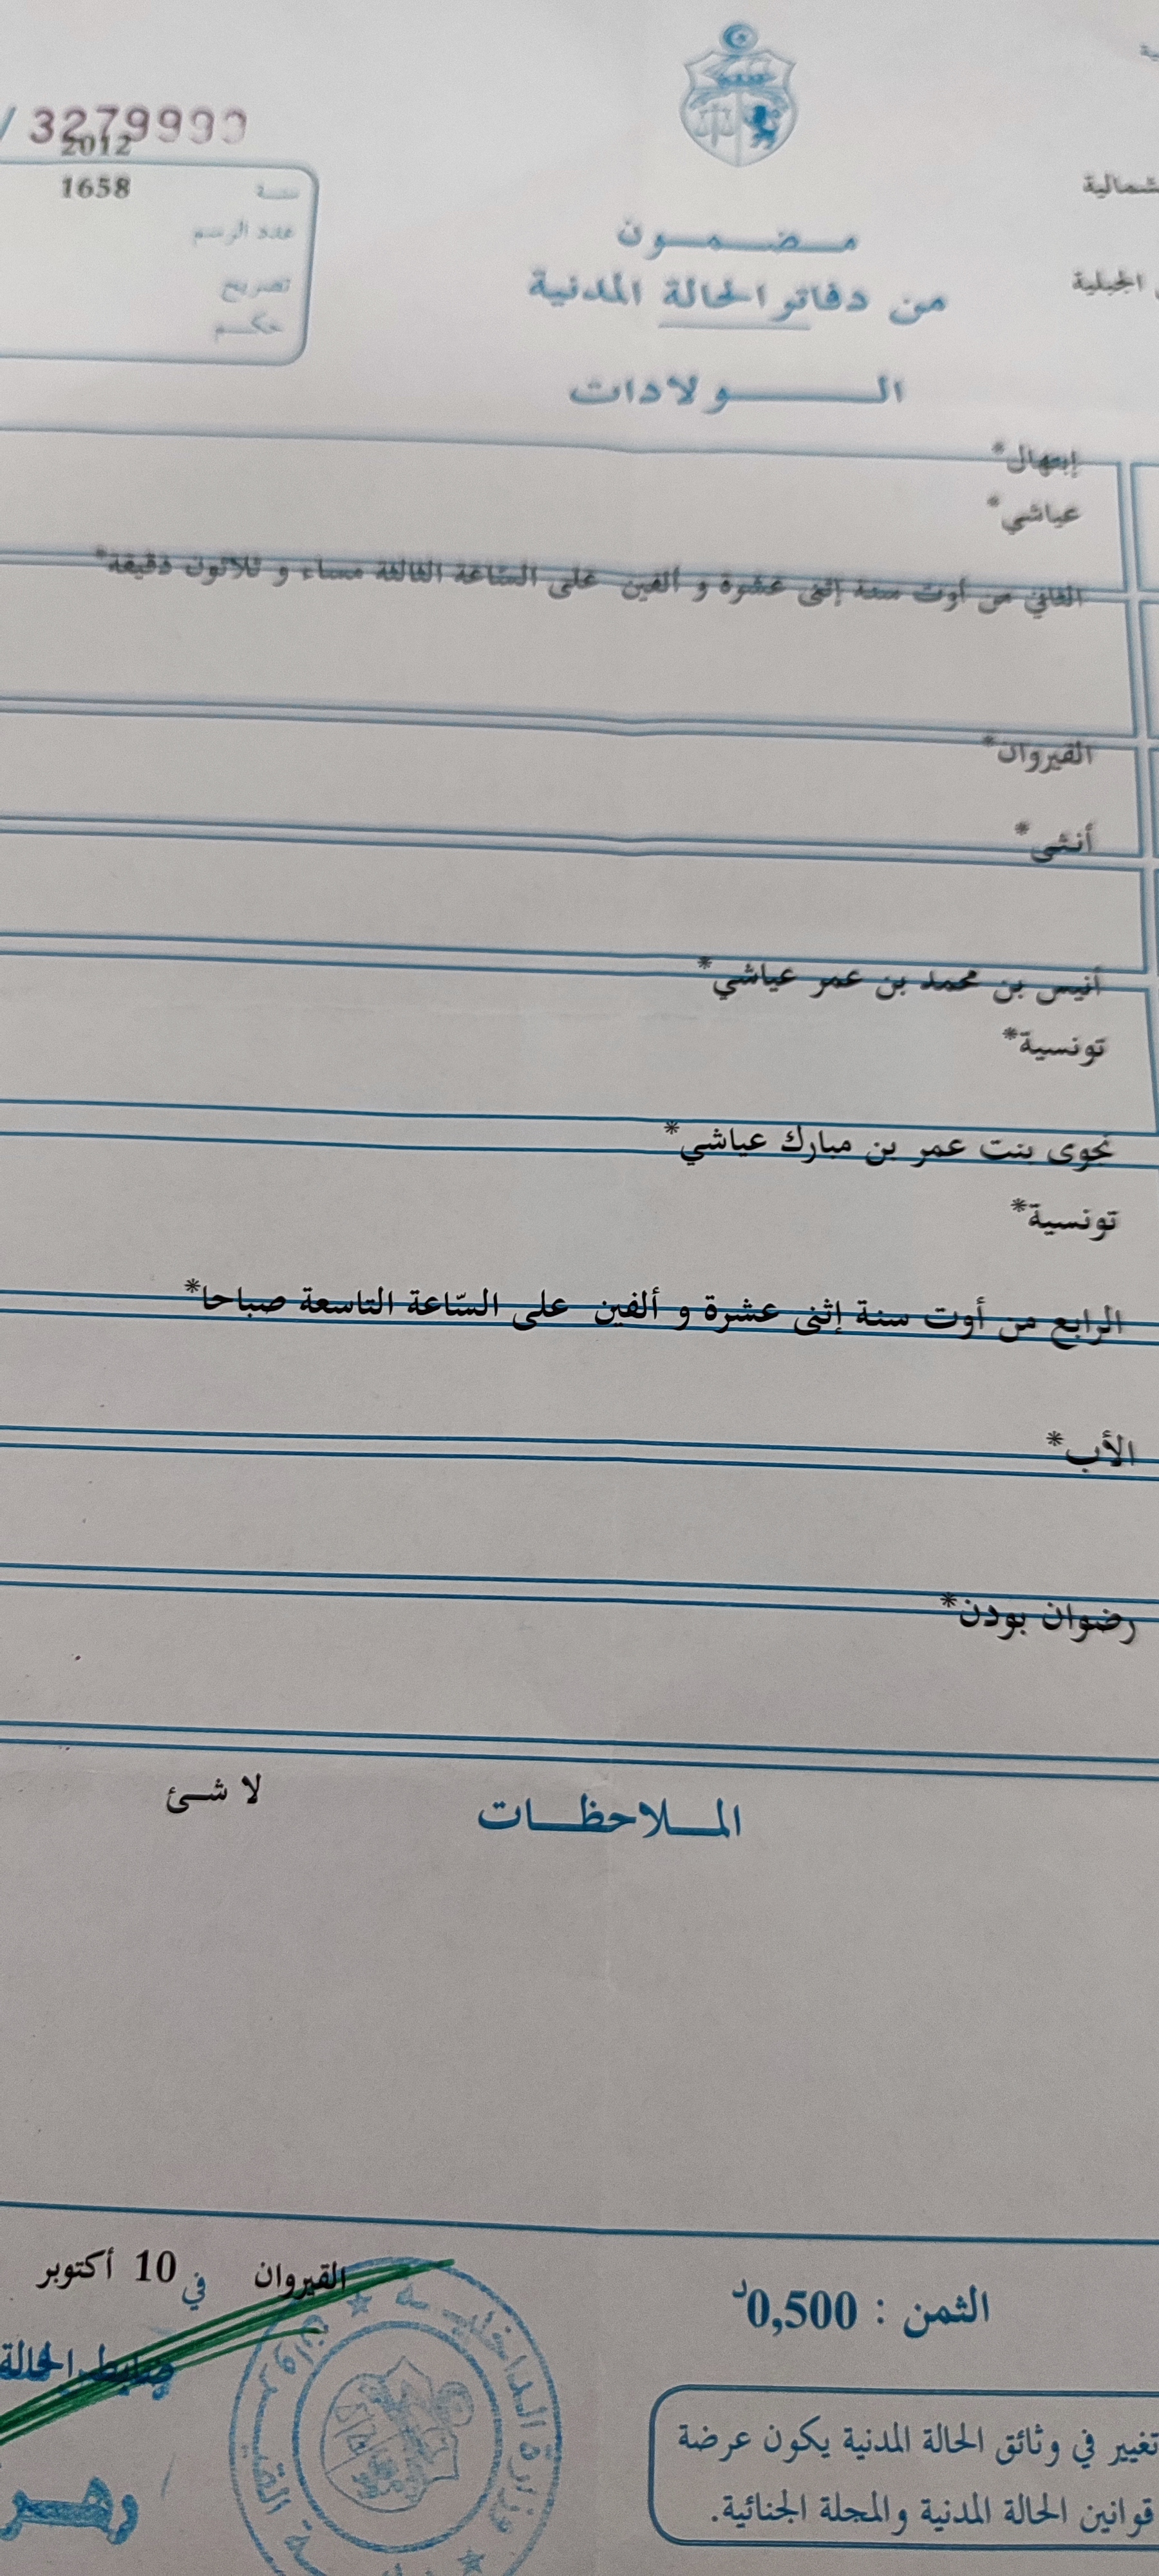 3279999
2012
1658
سنة
عدد الرسم
تصريح
حكم
شمالية
الجبلية
مضمون
من دفاتر الحالة المدنية
الولادات
إبتهال*
عياشي*
الثاني من أوت سنة إثنى عشرة و ألفين على السّاعة الثالثة مساء و ثلاثون دقيقة*
القيروان*
أنثى*
أنيس بن محمد بن عمر عياشي*
تونسية*
نجوى بنت عمر بن مبارك عياشي*
تونسية*
الرابع من أوت سنة إثنى عشرة و ألفين على السّاعة التاسعة صباحا*
الأب*
رضوان بودن*
الملاحظات
لا شئ
القيروان في 10 أكتوبر
ضابط الحالة
الثمن : 0,500د
تغيير في وثائق الحالة المدنية يكون عرضة
قوانين الحالة المدنية والمجلة الجنائية.
وزارة الداخلية